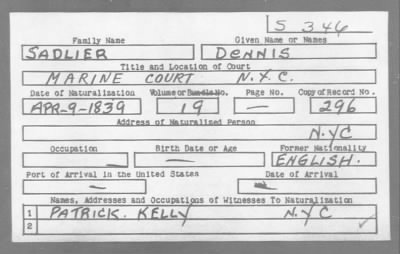 S 346
Family Name Given Name or Names
SADLIER DENNIS
Title and Location of Court
MARINE COURT N.Y.C.
Date of Naturalization Volume or Bundle No. Page No. Copy of Record No.
APR-9-1839 19 — 296
Address of Naturalized Person
N.Y.C
Occupation Birth Date or Age Former Nationality
— — ENGLISH.
Port of Arrival in the United States Date of Arrival
— —
Names, Addresses and Occupations of Witnesses To Naturalization
1 PATRICK. KELLY N.Y.C
2